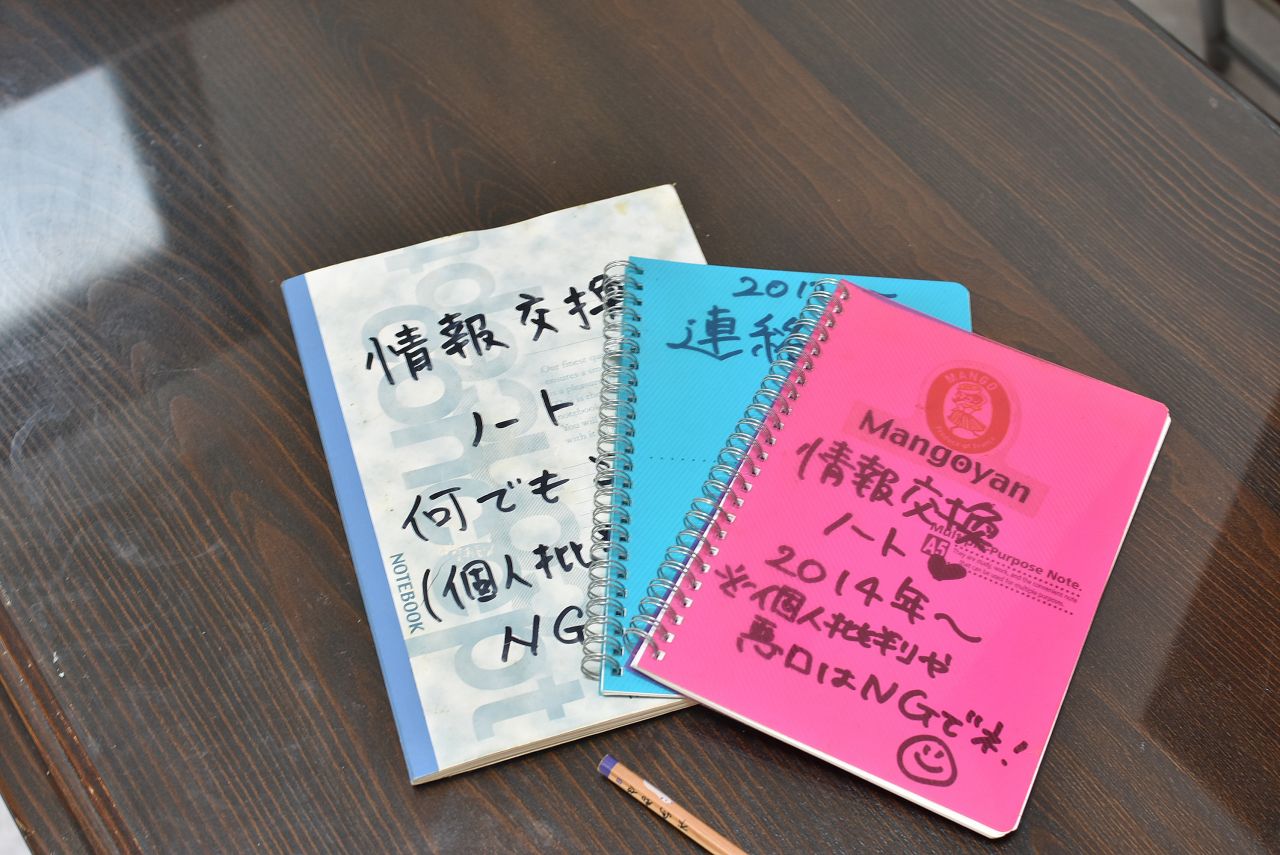 情報交換
ノート
何でも
(個人批
NG
NOTEBOOK
201
連絡
MANGO
Mangoyan
情報交換
ノート
Multi-Purpose Note.
A5
2014年～
※個人批判や
悪口はNGでネ!